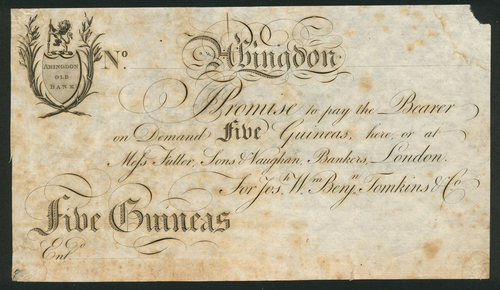 ABINGDON
OLD
BANK
No. Abingdon.
I Promise to pay the Bearer
on Demand Five Guineas, here, or at
Mess Fuller, Sons & Vaughan, Bankers, London.
For Josh. Wm. Benjn. Tomkins & Co
Five Guineas
Entd.